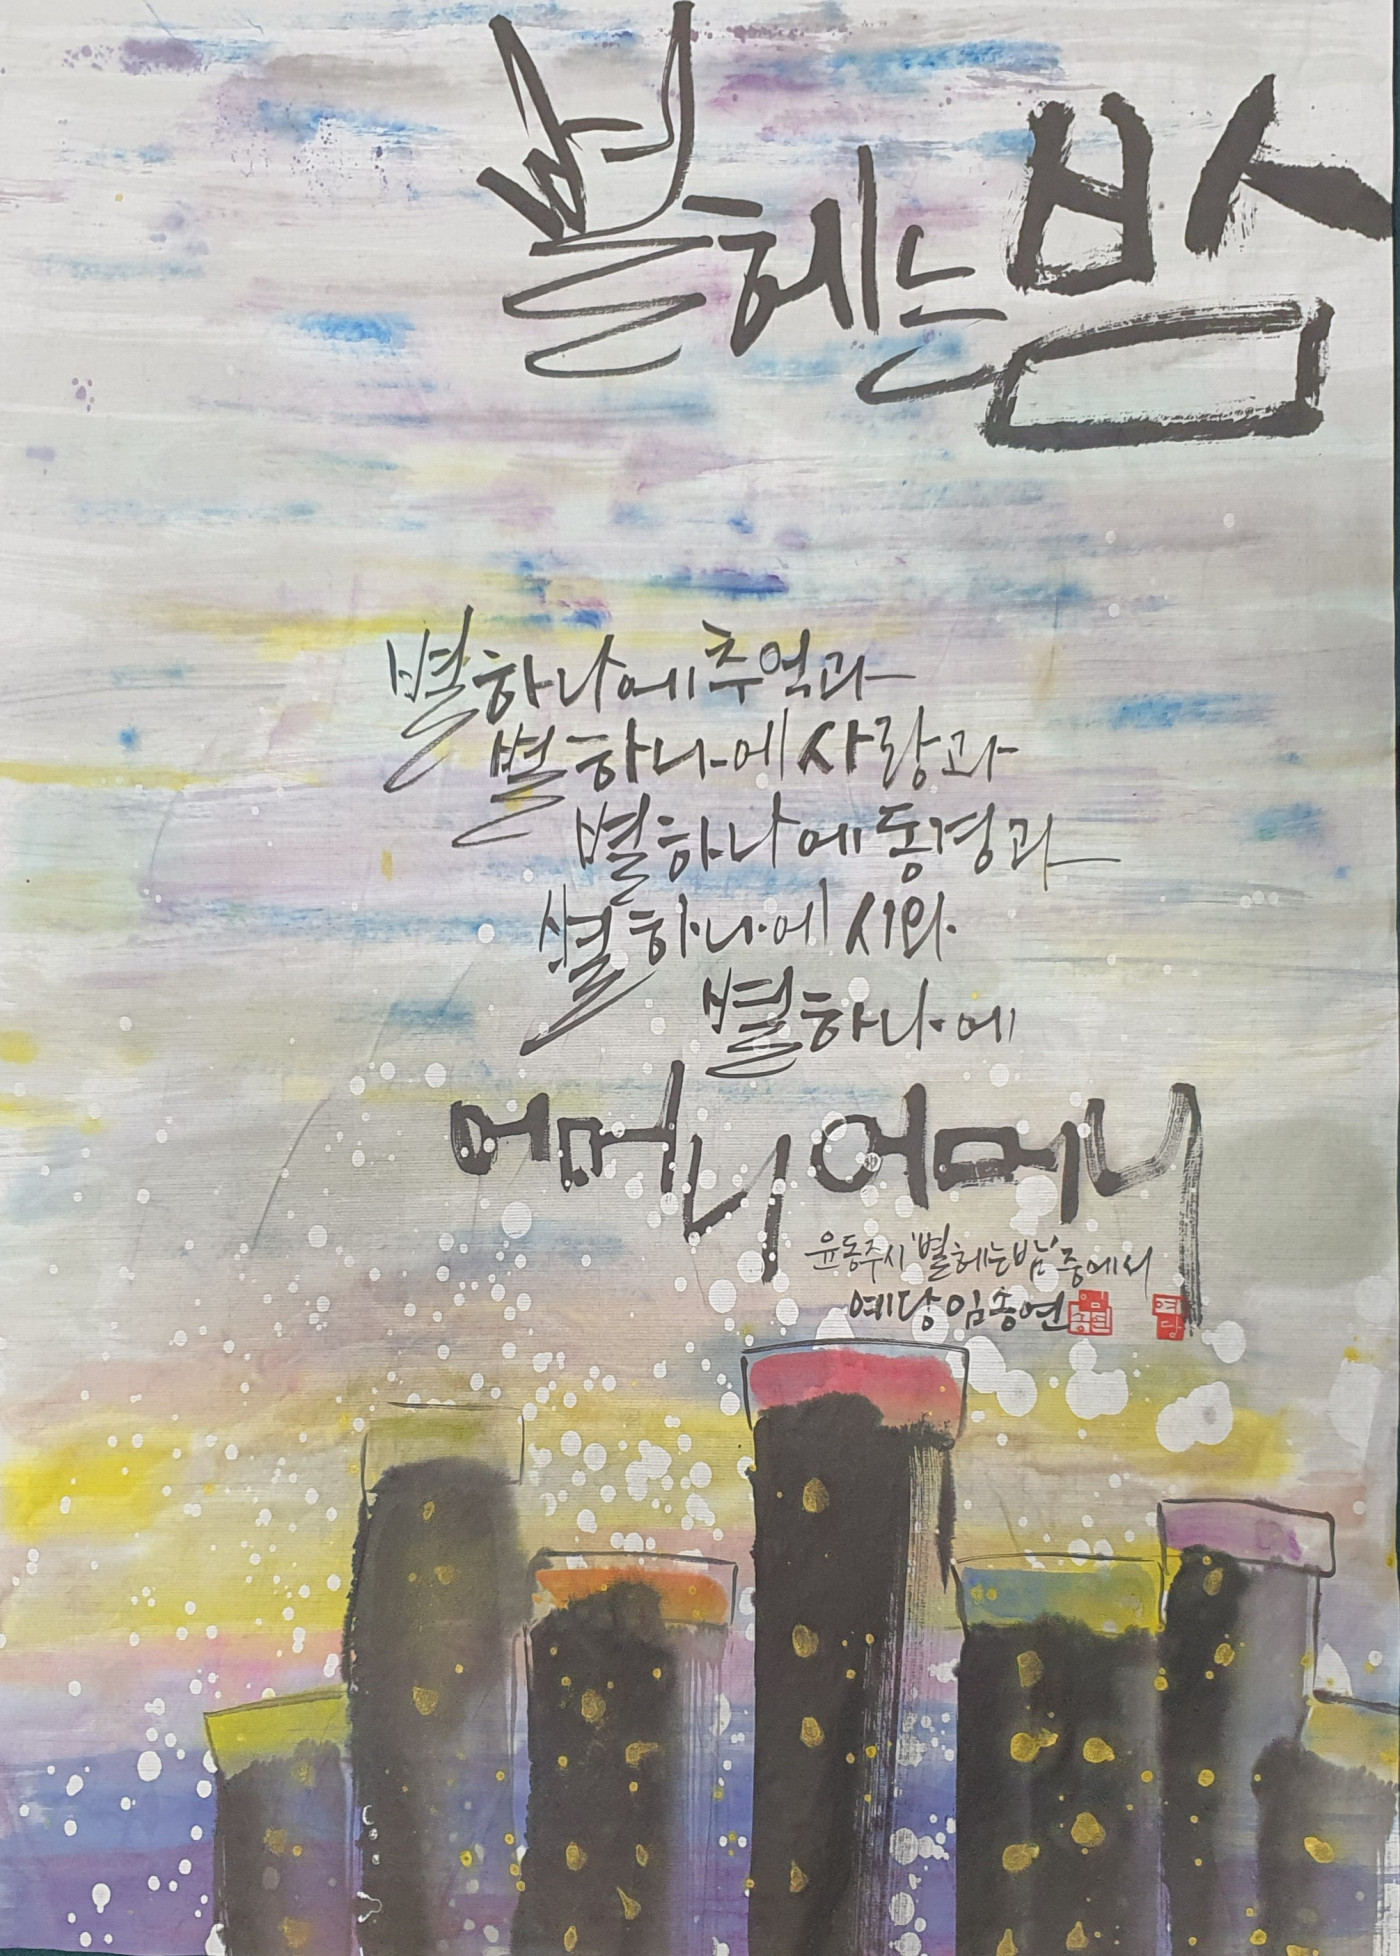 별 헤는 밤
별 하나에 추억과
별 하나에 사랑과
별 하나에 동경과
별 하나에 시와
별 하나에
어머니 어머니
윤동주 시 '별 헤는 밤' 중에서
예당 임송연
임송연
예당